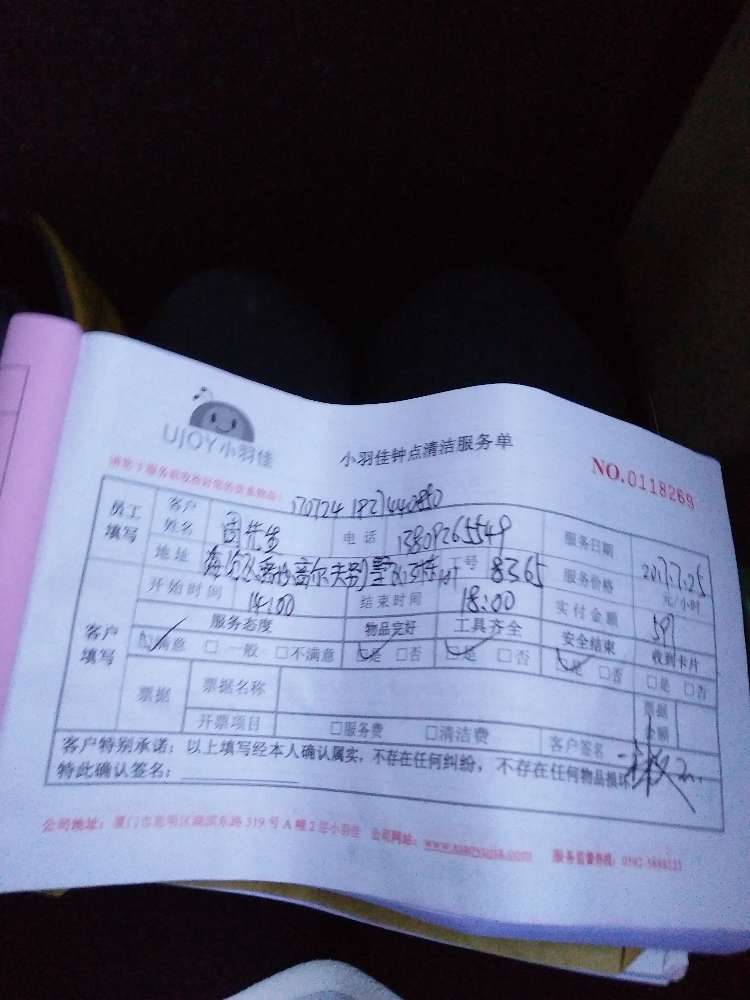 UJOY小羽佳
小羽佳钟点清洁服务单
NO.0118269
员工填写 客户姓名 周先生 电话 13809265549 服务日期 2017.7.25
地址 高尔夫别墅 号 8365 服务价格 元/小时
开始时间 14:00 结束时间 18:00 实付金额
客户填写 服务态度 物品完好 工具齐全 安全结束 收到卡片
满意 □一般 □不满意 是 □否 是 □否 是 □否 □是 □否
票据 票据名称 票据金额
开票项目 □服务费 □清洁费 客户签名
客户特别承诺：以上填写经本人确认属实，不存在任何纠纷，不存在任何物品损坏
特此确认签名：
公司地址：厦门市思明区湖滨东路319号A幢2层小羽佳 公司网站： 服务监督热线：